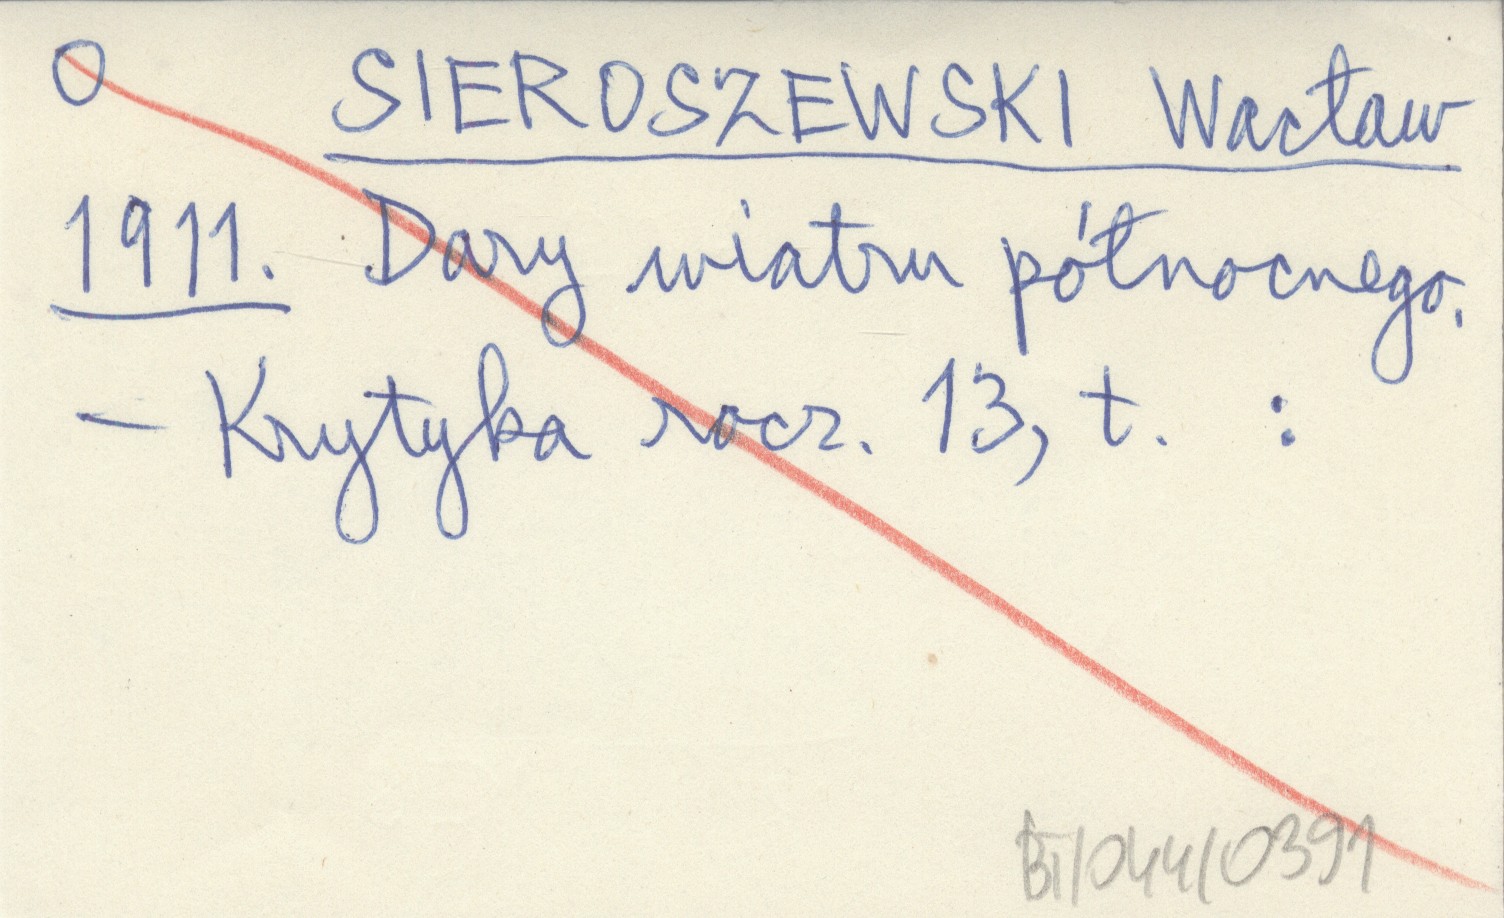 O SIEROSZEWSKI Wacław
1911. Dary wiatru północnego.
- Krytyka rocz. 13, t. :
BT/044/0391